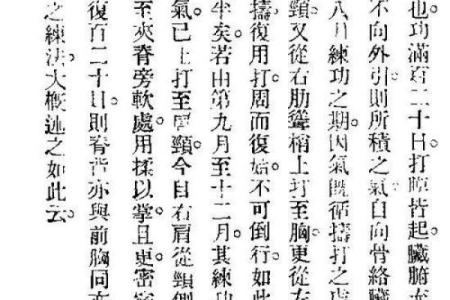 也功滿百二十日打膜皆起。臟腑
不向外引。則所積之氣自向骨絡臟
八月練功之期因氣既循擣打之
頸。又從右肋聳梢上打至胸更從左
擣。復用打。周而復始。不可倒行。如此
半矣。若由第九月至十二月。其練功
氣。已上打至胃頸。今自右肩從頸側
至夾脊旁軟處。用揉以掌且更密
復百二十日。則脊背亦與前胸同
之練法大概述之如此云。